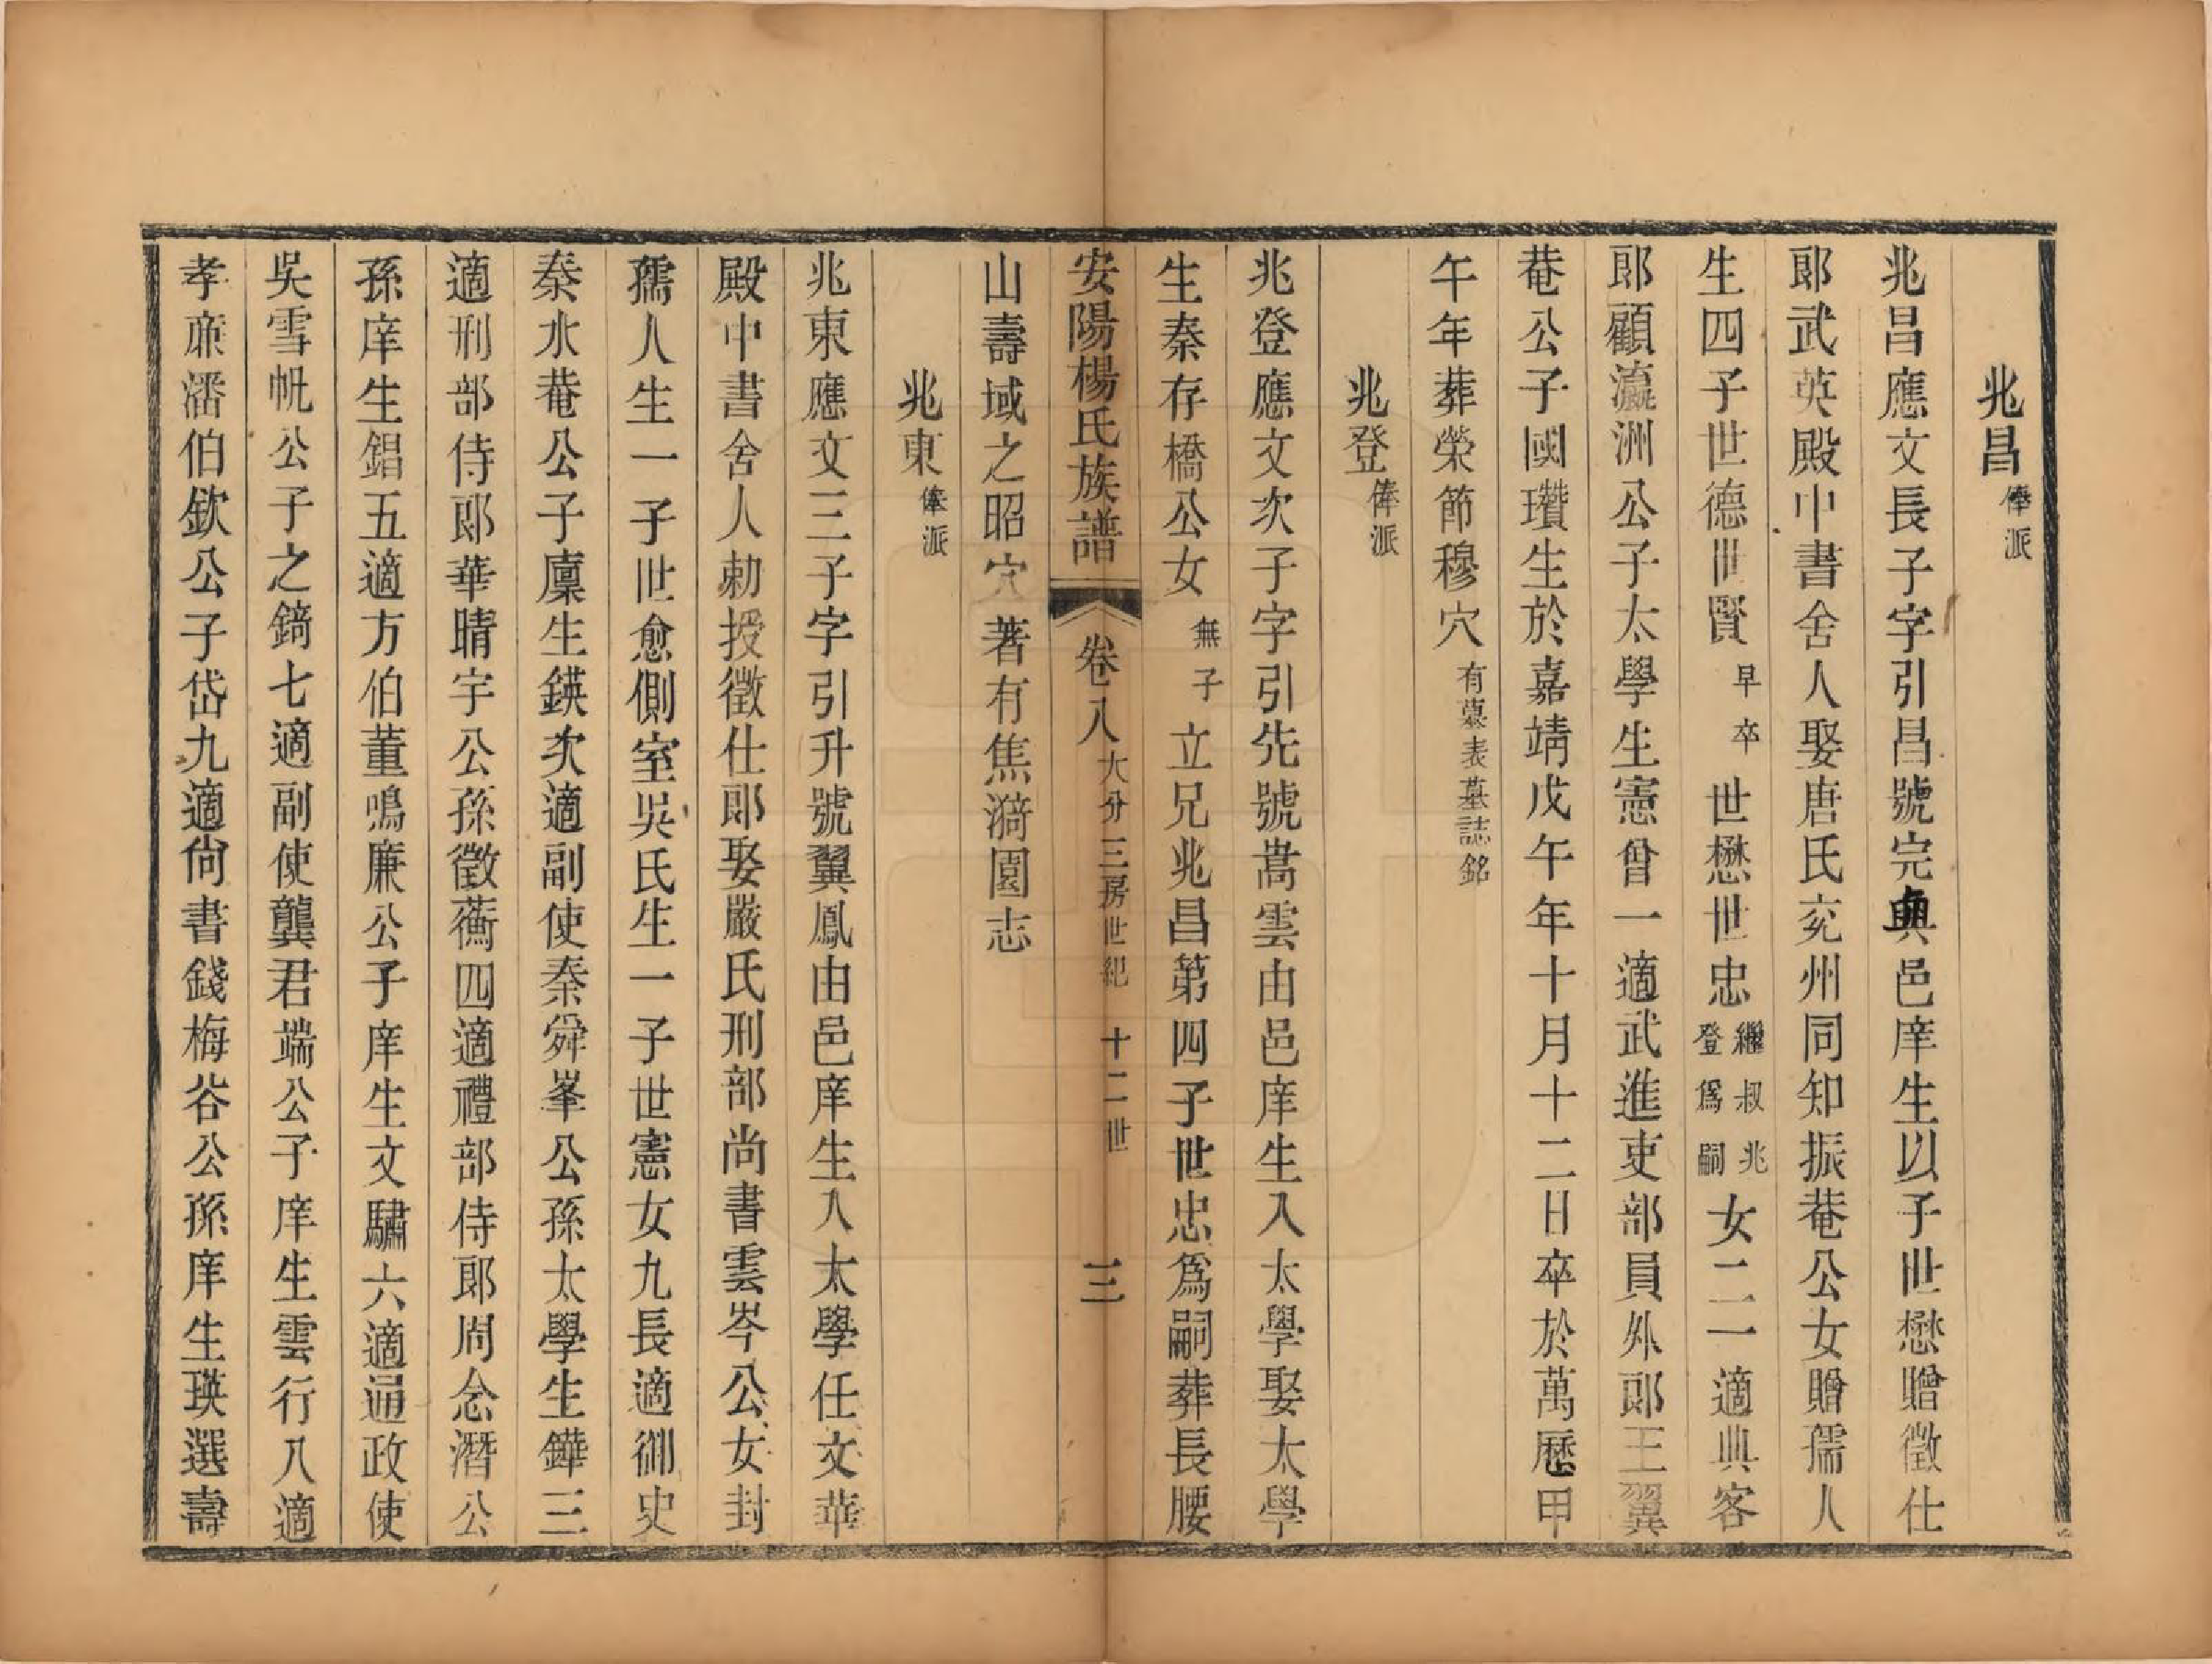 兆昌俸派
兆昌應文長子字引昌號完真邑庠生以子世懋贈徵仕
郎武英殿中書舍人娶唐氏兖州同知振菴公女贈孺人
生四子世德世賢早卒世懋世忠繼叔兆登爲嗣女二一適典客
郎顧瀛洲公子太學生憲曾一適武進吏部員外郎王翼
菴公子國瓚生於嘉靖戊午年十月十二日卒於萬歷甲
午年葬榮節穆穴有墓表墓誌銘
兆登俸派
兆登應文次子字引先號嵩雲由邑庠生入太學娶太學
生秦存橋公女無子立兄兆昌第四子世忠爲嗣葬長腰
安陽楊氏族譜 卷八大分三房世紀 十二世 三
山壽域之昭穴著有焦漪園志
兆東俸派
兆東應文三子字引升號翼鳳由邑庠生入太學任文華
殿中書舍人勅授徵仕郎娶嚴氏刑部尚書雲岑公女封
孺人生一子世愈側室吳氏生一子世憲女九長適御史
秦水菴公子廩生鍈次適副使秦舜峯公孫太學生鏵三
適刑部侍郎華晴宇公孫徵蘅四適禮部侍郎周念潛公
孫庠生錩五適方伯董鳴廉公子庠生文驌六適通政使
吳雪帆公子之錡七適副使龔君端公子庠生雲行八適
孝亷潘伯欽公子岱九適尙書錢梅谷公孫庠生瑛選壽